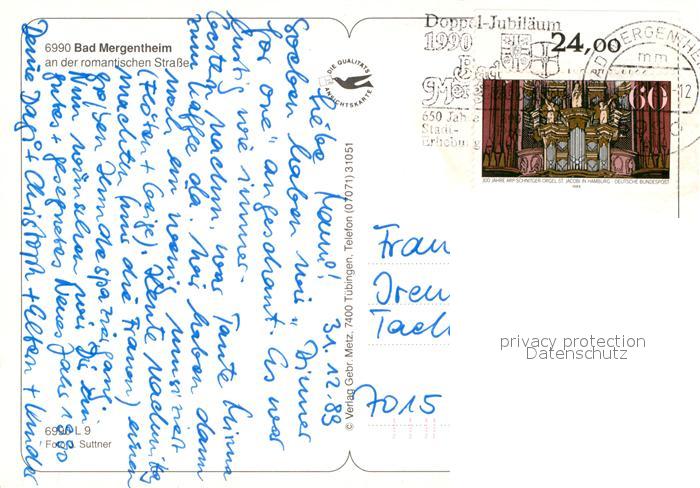 6990 Bad Mergentheim
an der romantischen Straße
Liebe Mami! 31.12.89
Soeben haben wir "Dinner
for one" angeschaut. Es war
lustig wie immer.
Gestern nachm. war Tante Minna
zum Kaffe da. Wir haben dann
noch ein wenig musiziert
(Flöten + Geige). Heute nachmittag
machten (nur die Frauen) einen
großen Hundespaziergang.
Nun wünschen wir Dir ein
gutes + gesegnetes Neues Jahr 1990
Deine Dagi + Christoph + Eltern + Kinder
6990 L 9
Foto: B. Suttner
DIE QUALITÄTS
ANSICHTSKARTE
© Verlag Gebr. Metz, 7400 Tübingen, Telefon (07071) 31051
Doppel-Jubiläum
1990
Bad
650 Jahre
Stadt-
Erhebung
24,00
BAD MERGENTHEIM
mm
12
60
300 JAHRE ARP SCHNITGER-ORGEL ST. JACOBI IN HAMBURG · DEUTSCHE BUNDESPOST
1989
Frau
Iren
Tach
7015
privacy protection
Datenschutz